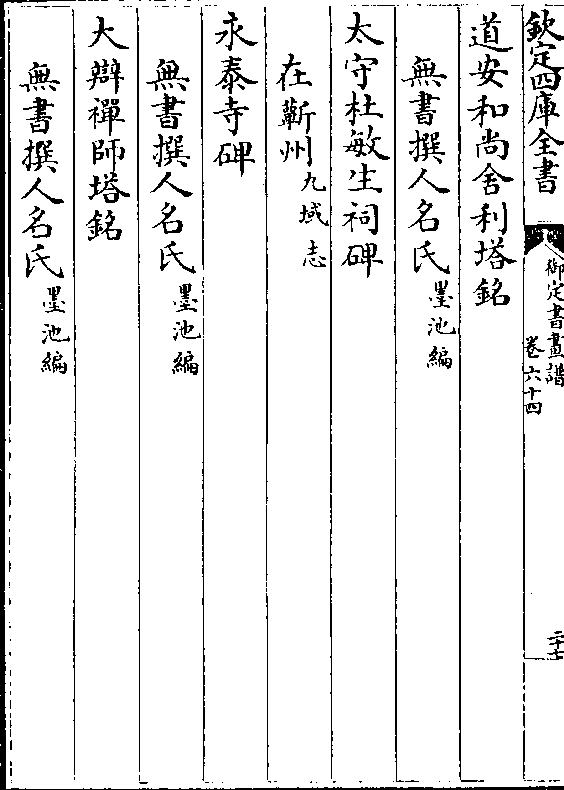 欽定四庫全書
御定書畫譜
卷六十四
二十七
道安和尚舍利塔銘
無書撰人名氏墨池編
太守杜敏生祠碑
在蘄州九域志
永泰寺碑
無書撰人名氏墨池編
大辯禪師塔銘
無書撰人名氏墨池編